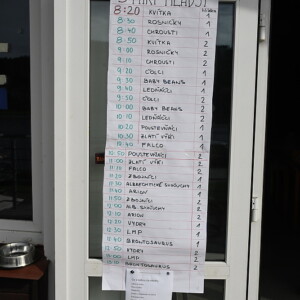 START MLADŠÍ
8:20 KVÍTKA 1
8:30 ROSNIČKY 1
8:40 CHROUSTI 1
8:50 KVÍTKA 2
9:00 ROSNIČKY 2
9:10 CHROUSTI 2
9:20 ČOLCI 1
9:30 BABY BEANS 1
9:40 LEDŇÁČCI 1
9:50 ČOLCI 2
10:00 BABY BEANS 2
10:10 LEDŇÁČCI 2
10:20 POUSTEVNÍCI 1
10:30 ZLATÍ VÝŘI 1
10:40 FALCO 1
10:50 POUSTEVNÍCI 2
11:00 ZLATÍ VÝŘI 2
11:10 FALCO 2
11:20 ZBOJNÍCI 1
11:30 1
11:40 ARION 1
11:50 ZBOJNÍCI 2
12:00 2
12:10 ARION 2
12:20 VYDRY 1
12:30 LMP 1
12:40 BRONTOSAURUS 1
12:50 VYDRY 2
LMP 2
BRONTOSAURUS 2